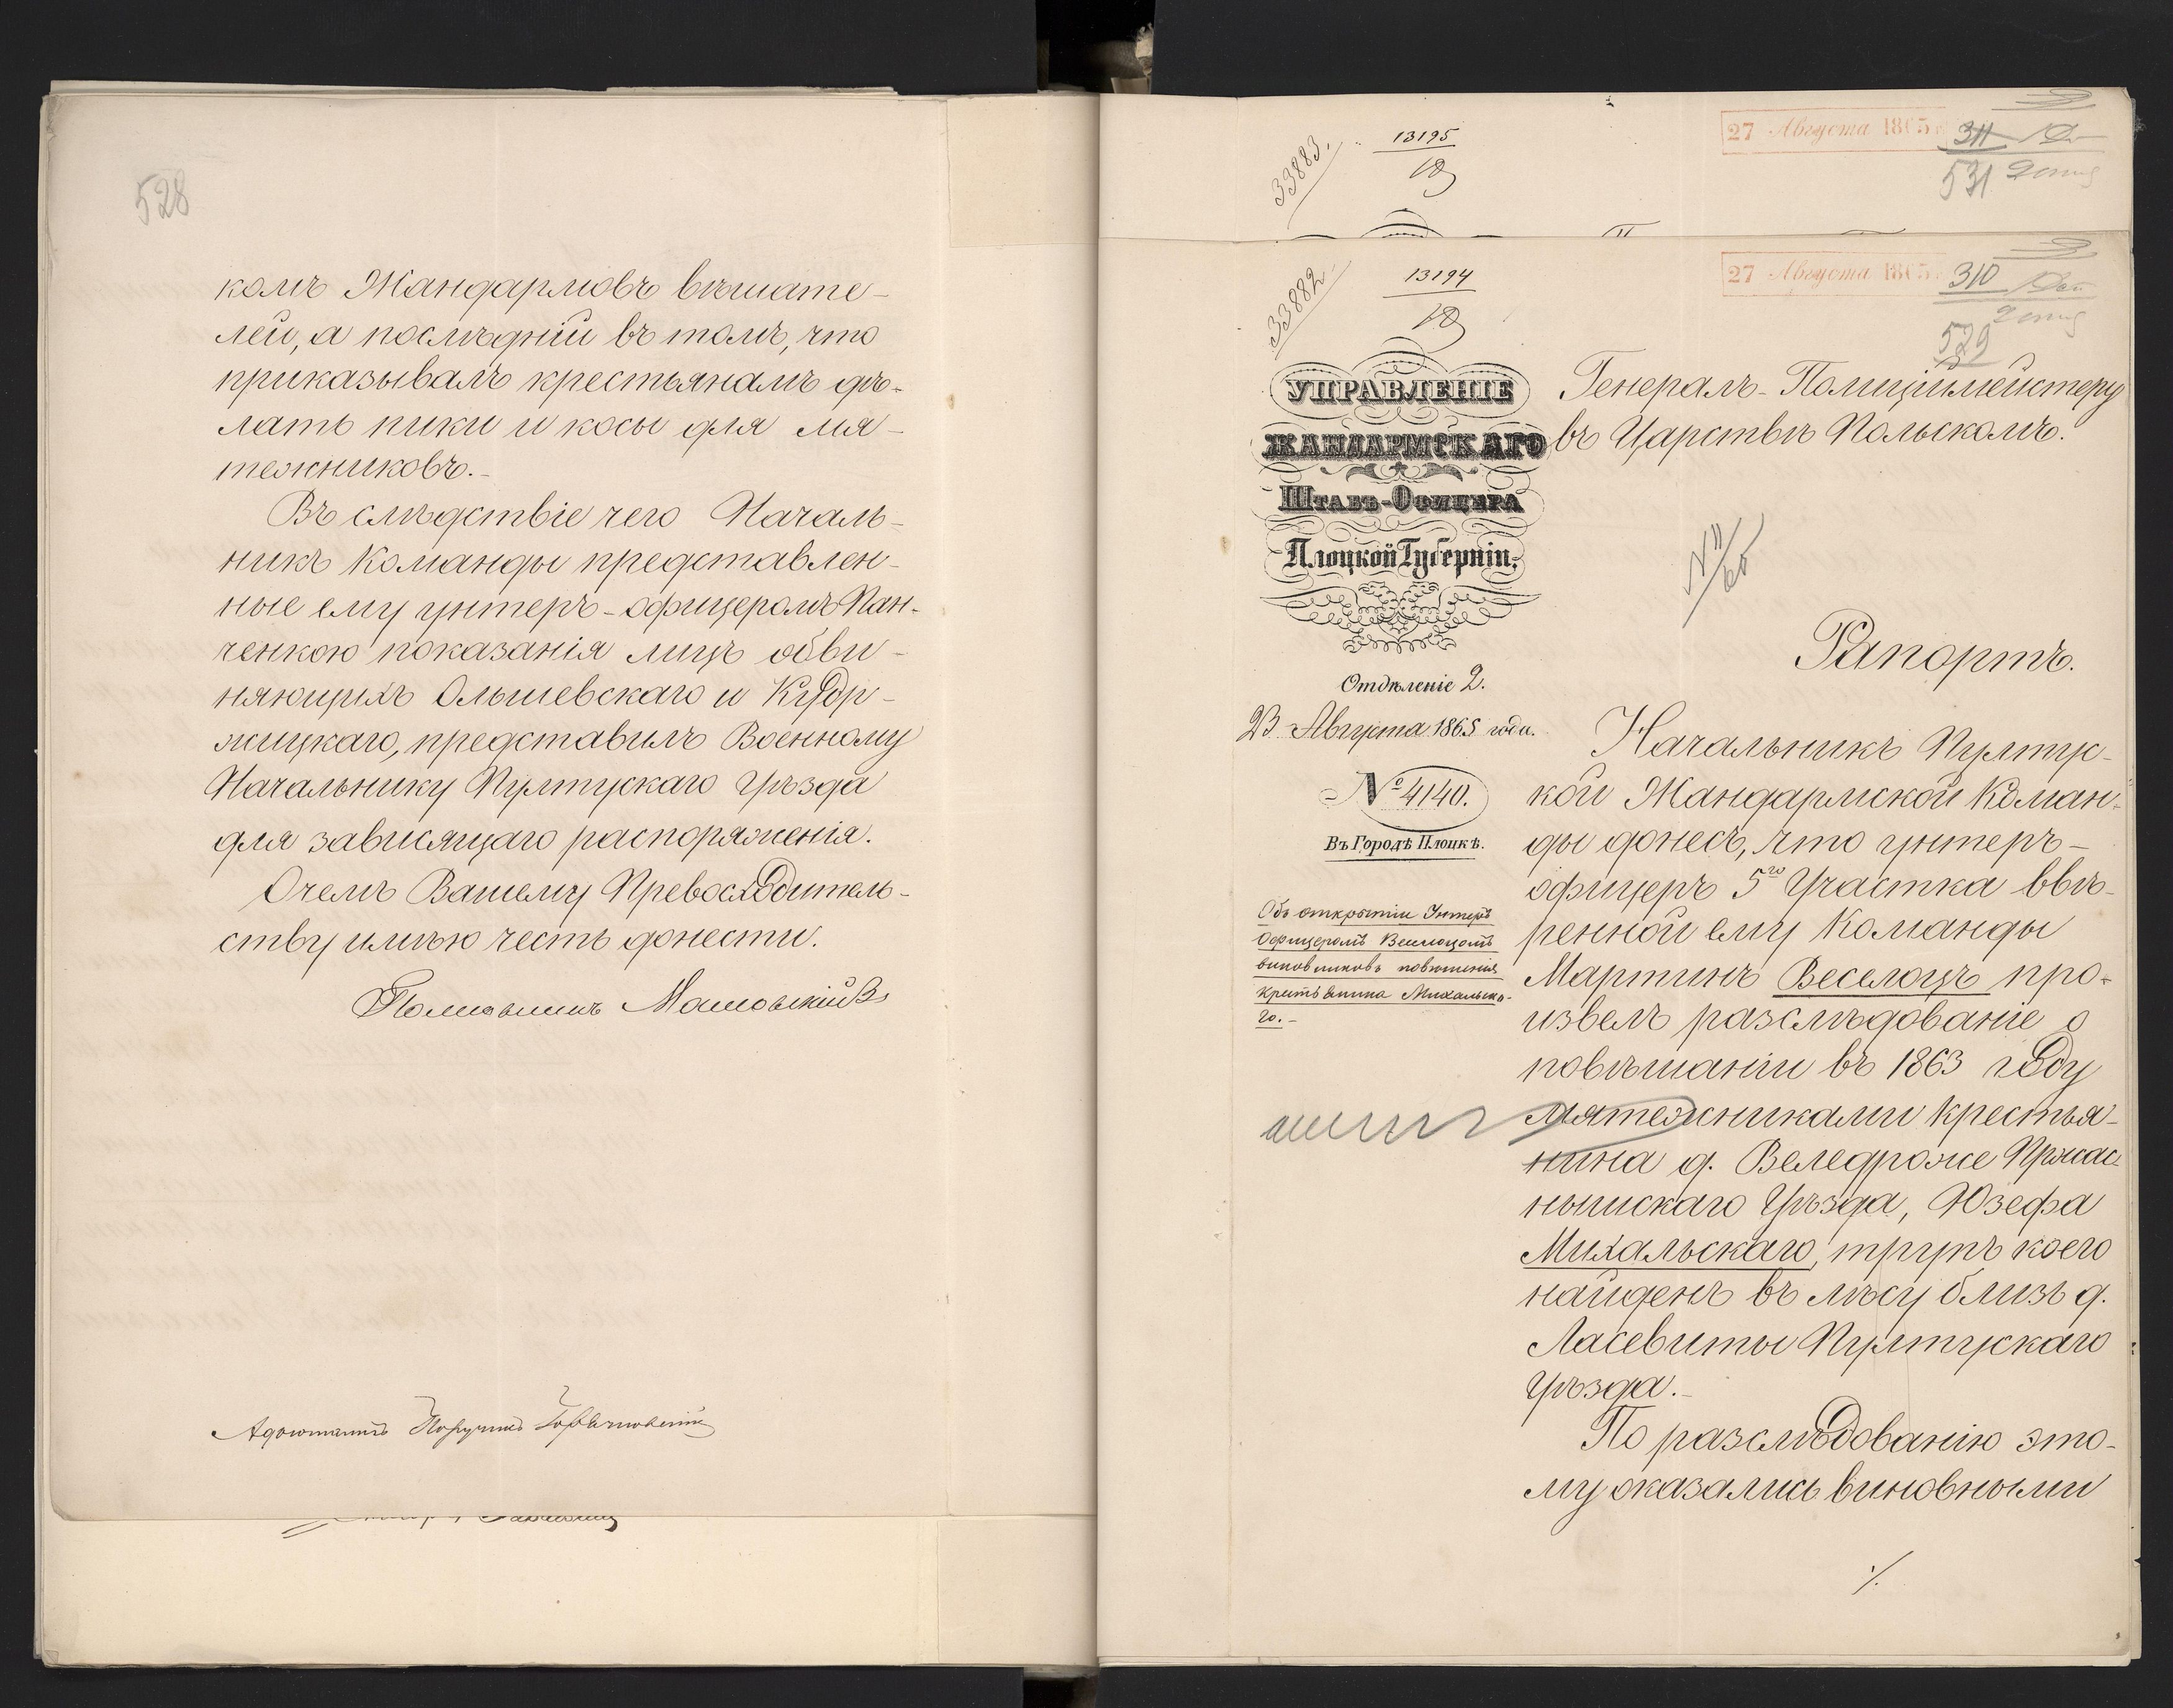 528
комъ Жандармовъ вѣшате-
лей, а послѣдній въ томъ, что
приказывалъ крестьянамъ дѣ-
лать пики и косы для мя-
тежниковъ.-
Въ слѣдствіе чего Началь-
никъ Команды представлен-
ные ему унтеръ-офицеромъ Пан-
ченкою показанія лицъ обви-
няющихъ Ольшевскаго и Кудр-
жицкаго, представилъ Военному
Начальнику Пултускаго Уѣзда
для зависящаго распоряженія.
О чемъ Вашему Превосходитель-
ству имѣю честь донести.
Полковникъ
Адъютантъ Поручикъ
27 Августа 1865
311
531
33883.
13195
27 Августа 1865
310
529
33882
13194
УПРАВЛЕНІЕ
ЖАНДАРМСКАГО
Штабъ-Офицера
Плоцкой Губерніи.
Отдѣленіе 2.
23 Августа 1865 года.
№ 4140.
Въ Городѣ Плоцкѣ.
Объ открытіи Унтеръ
Офицеромъ Веселоцомъ
виновниковъ повѣшенія
крестьянина Михальска-
го.-
Генералъ-Полиціймейстеру
въ Царствѣ Польскомъ.
Рапортъ.
Начальникъ Пултус-
кой Жандармской Коман-
ды донесъ, что унтеръ-
офицеръ 5го Участка ввѣ-
ренной ему Команды
Мартинъ Веселоцъ про-
извелъ разслѣдованіе о
повѣшаніи въ 1863 году
мятежниками крестья-
нина д. Веледроже Пржас-
нышскаго Уѣзда, Юзефа
Михальскаго, трупъ коего
найденъ въ лѣсу близь д.
Ласевиты Пултускаго
Уѣзда.-
По разслѣдованію это-
му оказались виновными
./.